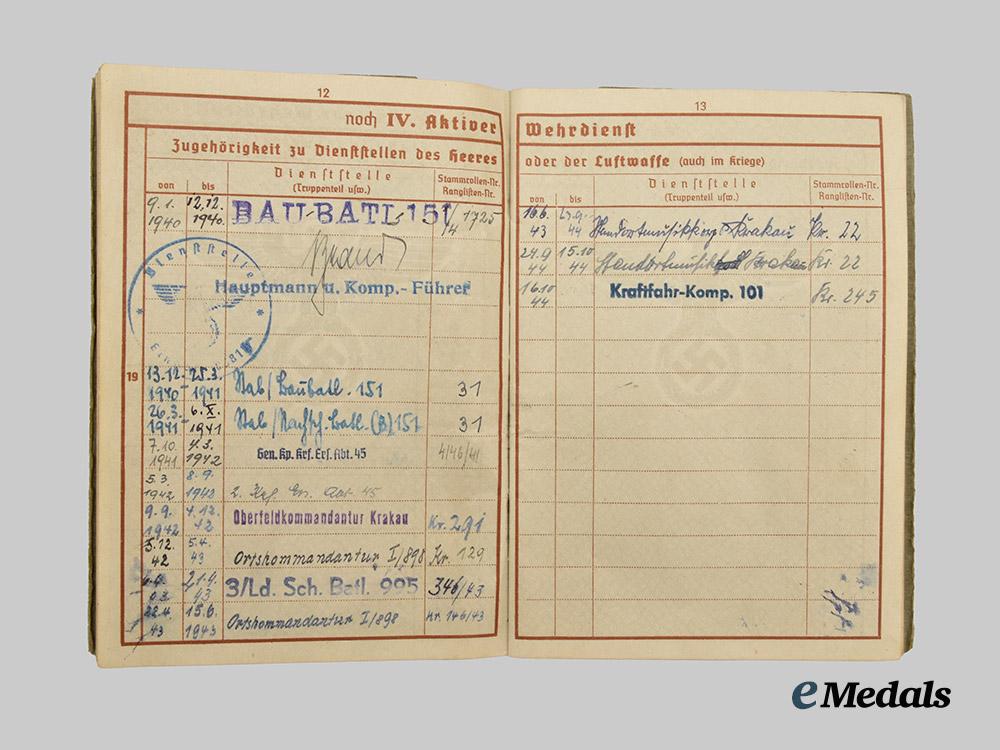 12
noch IV. Aktiver
Zugehörigkeit zu Dienststellen des Heeres
von bis Dienststelle (Truppenteil usw.) Stammrollen-Nr. Ranglisten-Nr.
9.1. 1940 12.12. 1940. BAU-BATL. 151/4 1725
Hauptmann u. Komp.-Führer
Dienststelle
19 13.12. 1940 25.3. 1941 Stab/Baubatl. 151 31
26.3. 1941 6.X. 1941 Stab/Nachsch. Batl. (B) 151 31
7.10. 1941 4.3. 1942 Gen. Kp. Krf. Ers. Abt. 45 4146/41
5.3. 1942 8.9. 1942 2. Krf. Ers. Abt. 45
9.9. 1942 4.12. 42 Oberfeldkommandantur Krakau Kr. 291
5.12. 42 5.4. 43 Ortskommandantur I/898 Kr. 129
21.4. 43 3/Ld. Sch. Batl. 995 346/43
22.4. 43 15.6. 1943 Ortskommandantur I/898 Kr. 146/43
13
Wehrdienst
oder der Luftwaffe (auch im Kriege)
von bis Dienststelle (Truppenteil usw.) Stammrollen-Nr. Ranglisten-Nr.
16.6. 43 23.9. 44 Standortmusikkorps Krakau Kr. 22
24.9 44 15.10 44 Standortmusik Krakau Kr. 22
16.10 44 Kraftfahr-Komp. 101 Kr. 245
eMedals